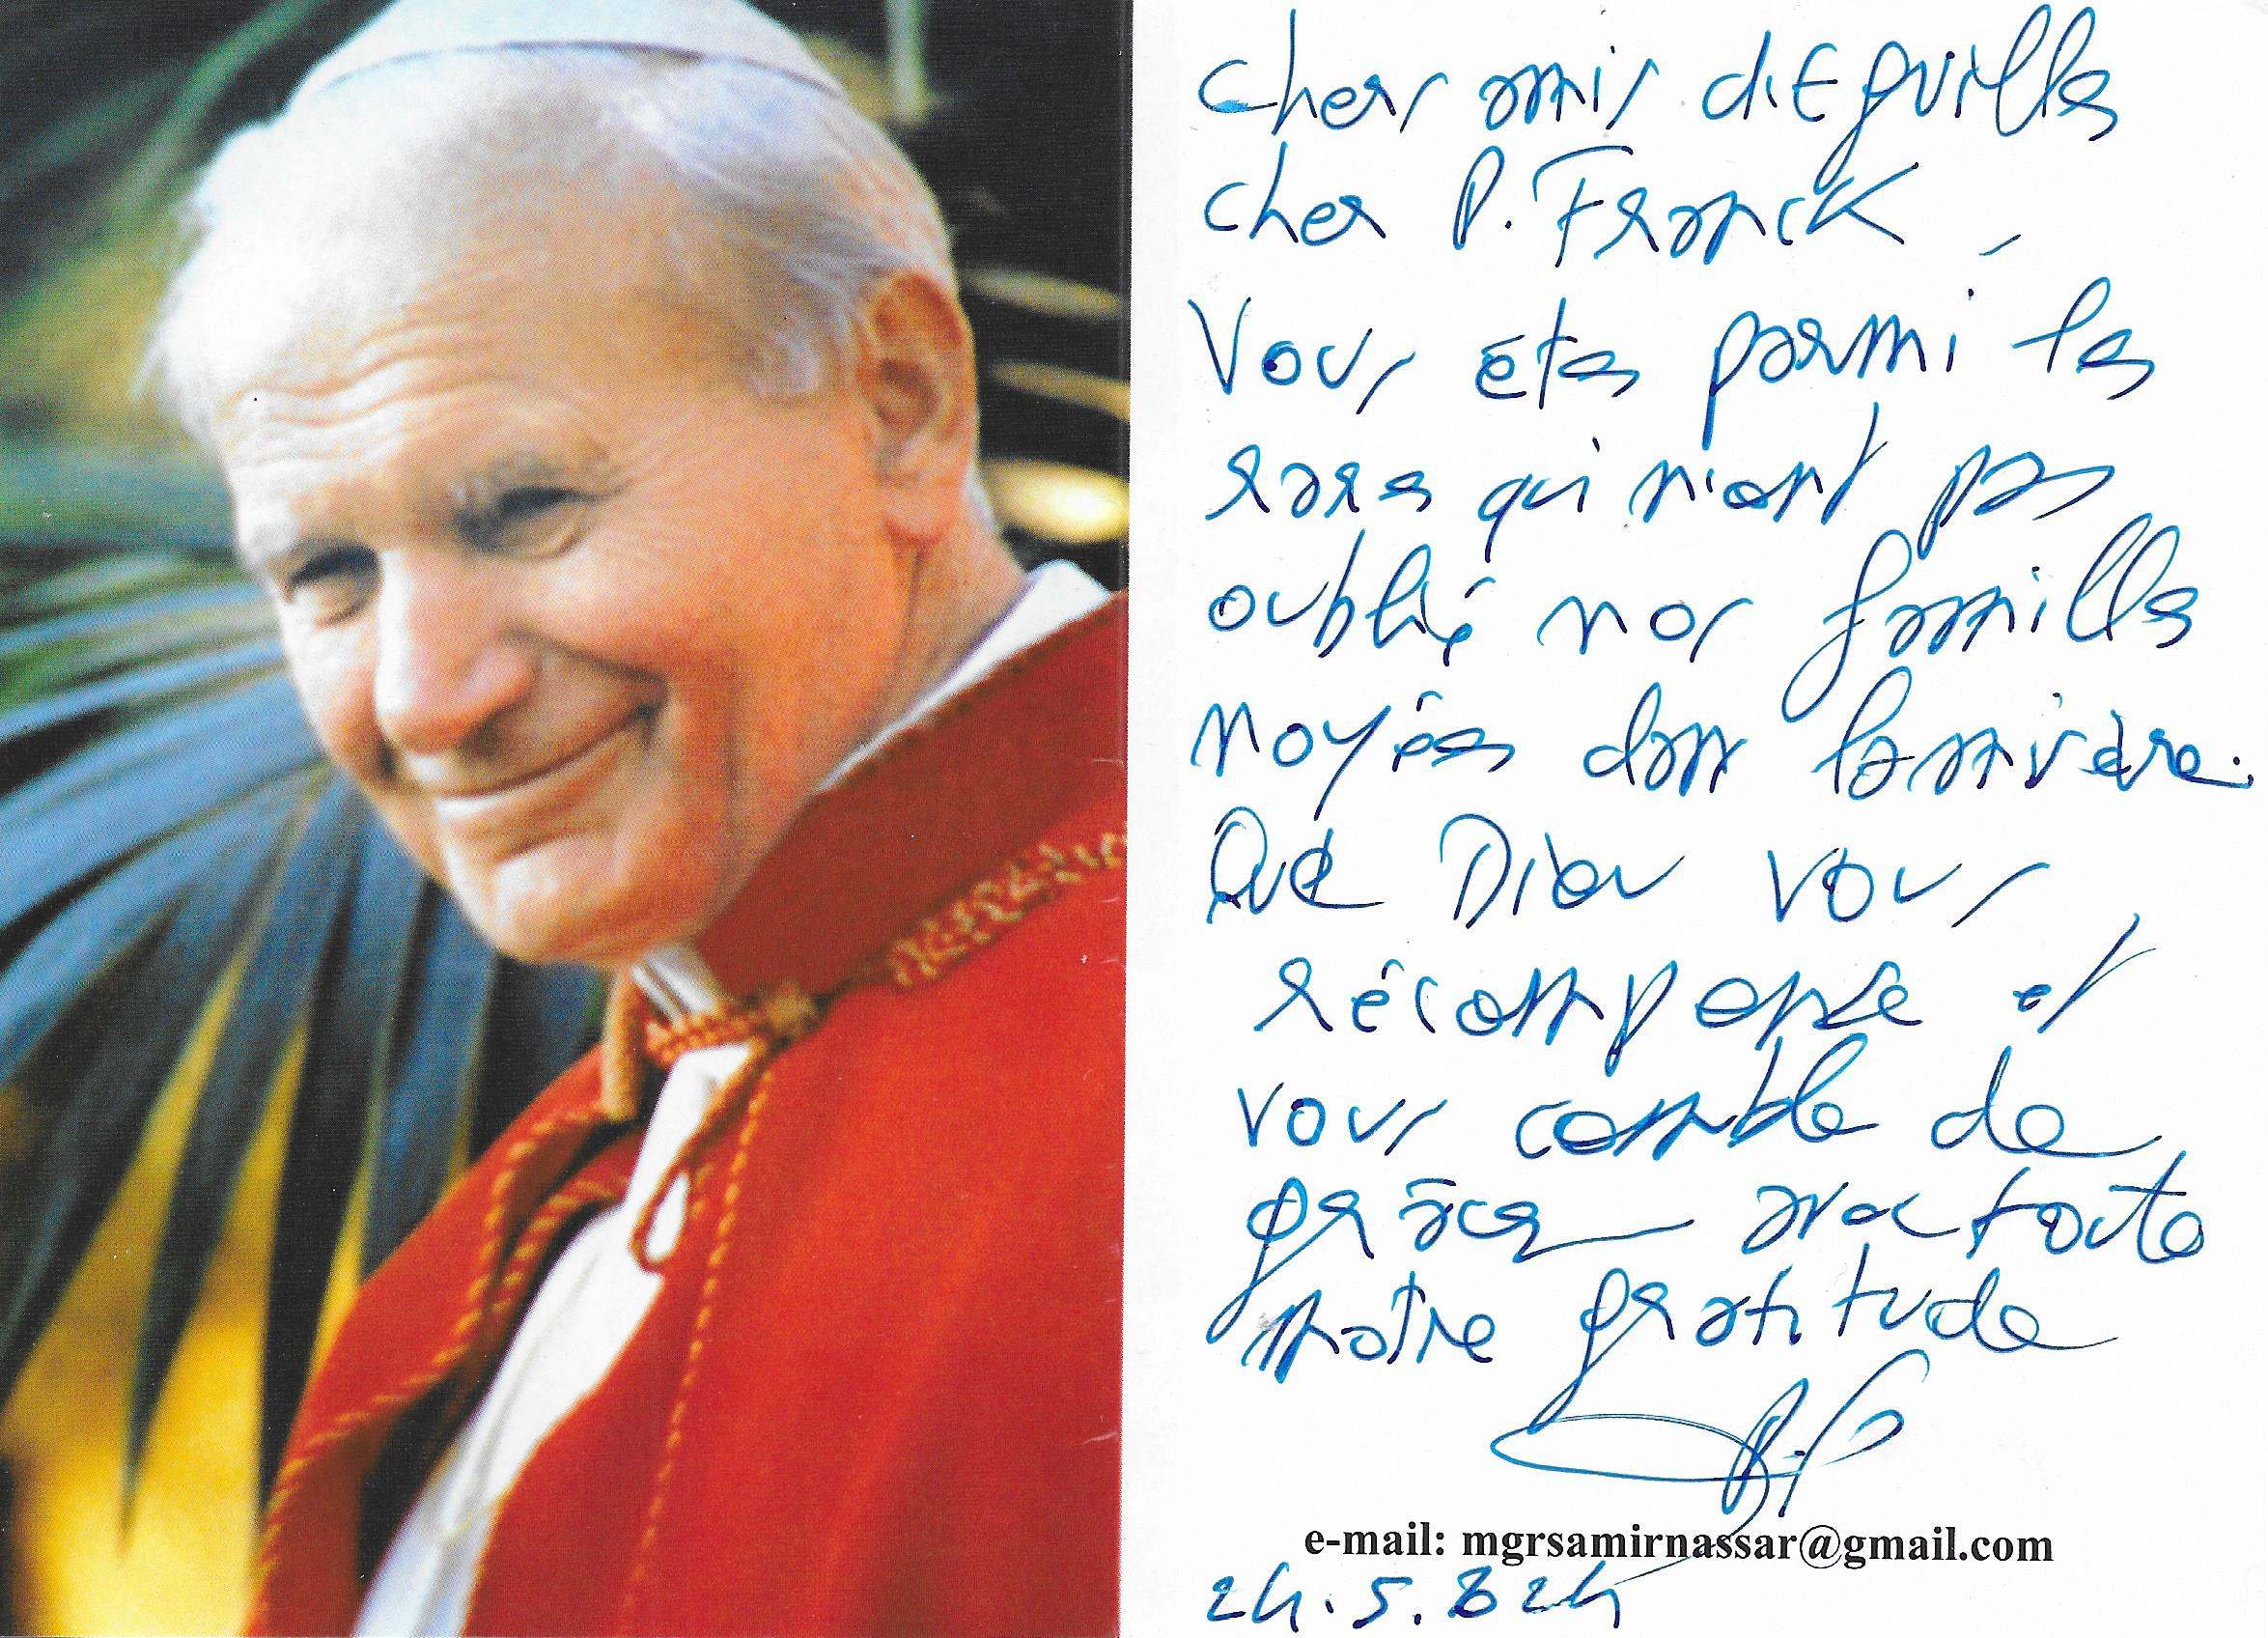 Chers amis d'Eguilles
cher P. Franck,
Vous êtes parmi les
rares qui n'ont pas
oublié nos familles
noyées dans la misère.
Que Dieu vous
récompense et
vous comble de
grâces avec toute
notre gratitude
e-mail: mgrsamirnassar@gmail.com
24.5.2024